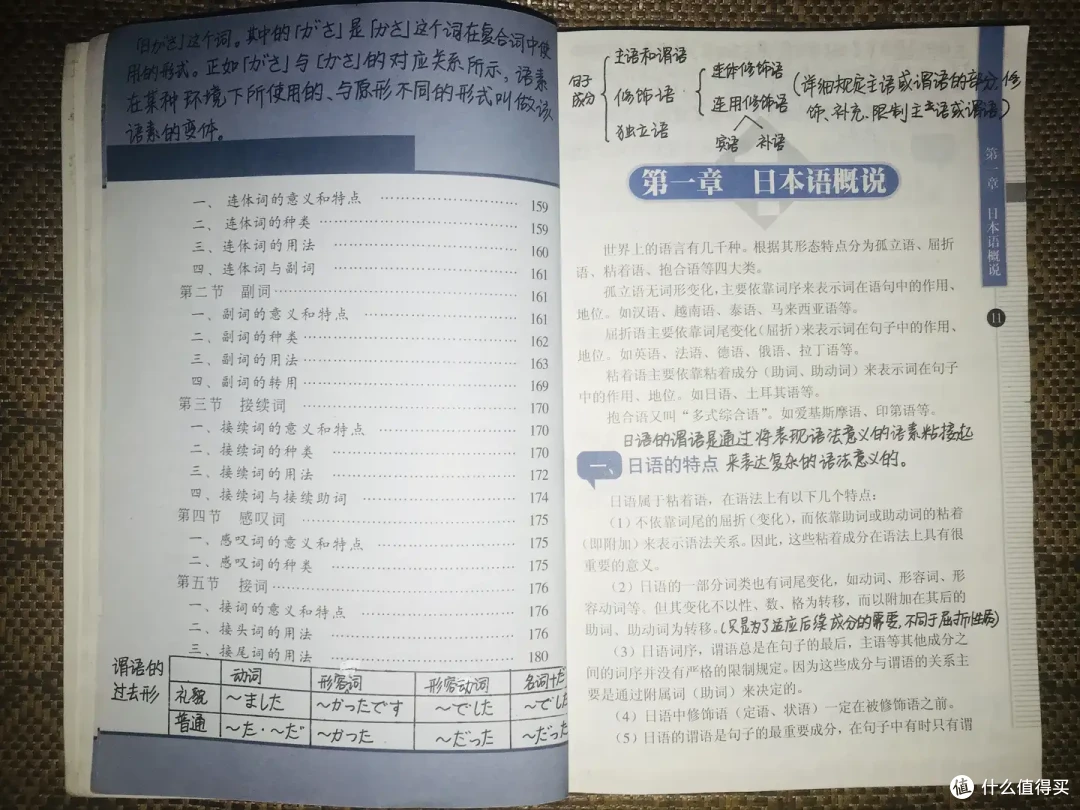 「日がさ」这个词。其中的「がさ」是「かさ」这个词在复合词中使
用的形式。正如「がさ」与「かさ」的对应关系所示，语素
在某种环境下所使用的、与原形不同的形式叫做该
语素的变体。
一、连体词的意义和特点 159
二、连体词的种类 159
三、连体词的用法 160
四、连体词与副词 161
第二节 副词 161
一、副词的意义和特点 161
二、副词的种类 162
三、副词的用法 163
四、副词的转用 169
第三节 接续词 170
一、接续词的意义和特点 170
二、接续词的种类 170
三、接续词的用法 172
四、接续词与接续助词 174
第四节 感叹词 175
一、感叹词的意义和特点 175
二、感叹词的种类 175
第五节 接词 176
一、接词的意义和特点 176
二、接头词的用法 176
三、接尾词的用法 180
谓语的
过去形
动词 形容词 形容动词 名词+だ
礼貌 ～ました ～かったです ～でした ～でした
普通 ～た・～だ ～かった ～だった ～だった
句子
成分
主语和谓语
修饰语
独立语
连体修饰语
连用修饰语
宾语 补语
(详细规定主语或谓语的部分，修
饰、补充、限制主语或谓语)
第一章 日本语概说
世界上的语言有几千种。根据其形态特点分为孤立语、屈折
语、粘着语、抱合语等四大类。
孤立语无词形变化，主要依靠词序来表示词在语句中的作用、
地位。如汉语、越南语、泰语、马来西亚语等。
屈折语主要依靠词尾变化（屈折）来表示词在句子中的作用、
地位。如英语、法语、德语、俄语、拉丁语等。
粘着语主要依靠粘着成分（助词、助动词）来表示词在句子
中的作用、地位。如日语、土耳其语等。
抱合语又叫“多式综合语”。如爱基斯摩语、印第语等。
日语的谓语是通过将表现语法意义的语素粘接起
来表达复杂的语法意义的。
一、日语的特点
日语属于粘着语，在语法上有以下几个特点：
（1）不依靠词尾的屈折（变化），而依靠助词或助动词的粘着
（即附加）来表示语法关系。因此，这些粘着成分在语法上具有很
重要的意义。
（2）日语的一部分词类也有词尾变化，如动词、形容词、形
容动词等。但其变化不以性、数、格为转移，而以附加在其后的
助词、助动词为转移。(只是为了适应后续成分的需要，不同于屈折性质)
（3）日语词序，谓语总是在句子的最后，主语等其他成分之
间的词序并没有严格的限制规定。因为这些成分与谓语的关系主
要是通过附属词（助词）来决定的。
（4）日语中修饰语（定语、状语）一定在被修饰语之前。
（5）日语的谓语是句子的最重要成分，在句子中有时只有谓
第一章 日本语概说
11
值 什么值得买